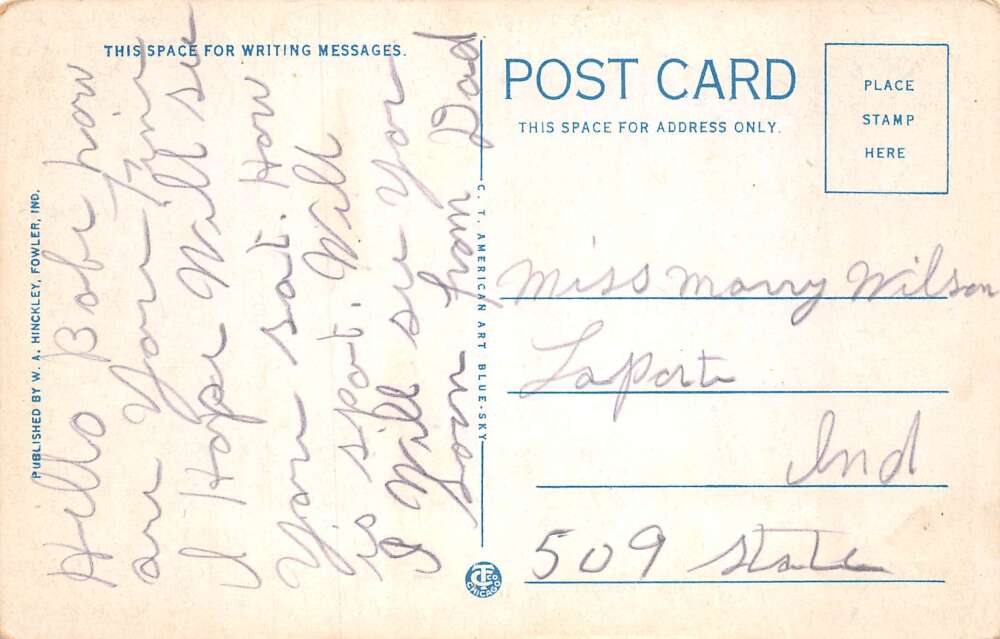 THIS SPACE FOR WRITING MESSAGES.
Hello Bobe how
are You Fine
I Hope Will see
You sat. How
is Spot. Will
I Will see You
soon From Dad
PUBLISHED BY W. A. HINCKLEY, FOWLER, IND.
C. T. AMERICAN ART BLUE-SKY
POST CARD
THIS SPACE FOR ADDRESS ONLY.
PLACE
STAMP
HERE
Miss Marry Wilson
LaPorte
Ind
509 State
CT CO
CHICAGO